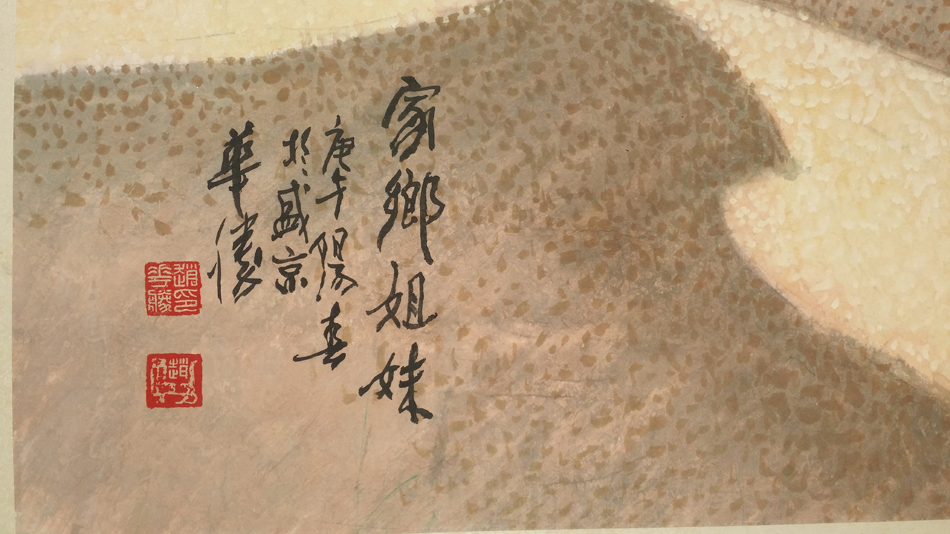 家鄉姐妹
庚午陽春
於盛京
華勝
趙印
華勝